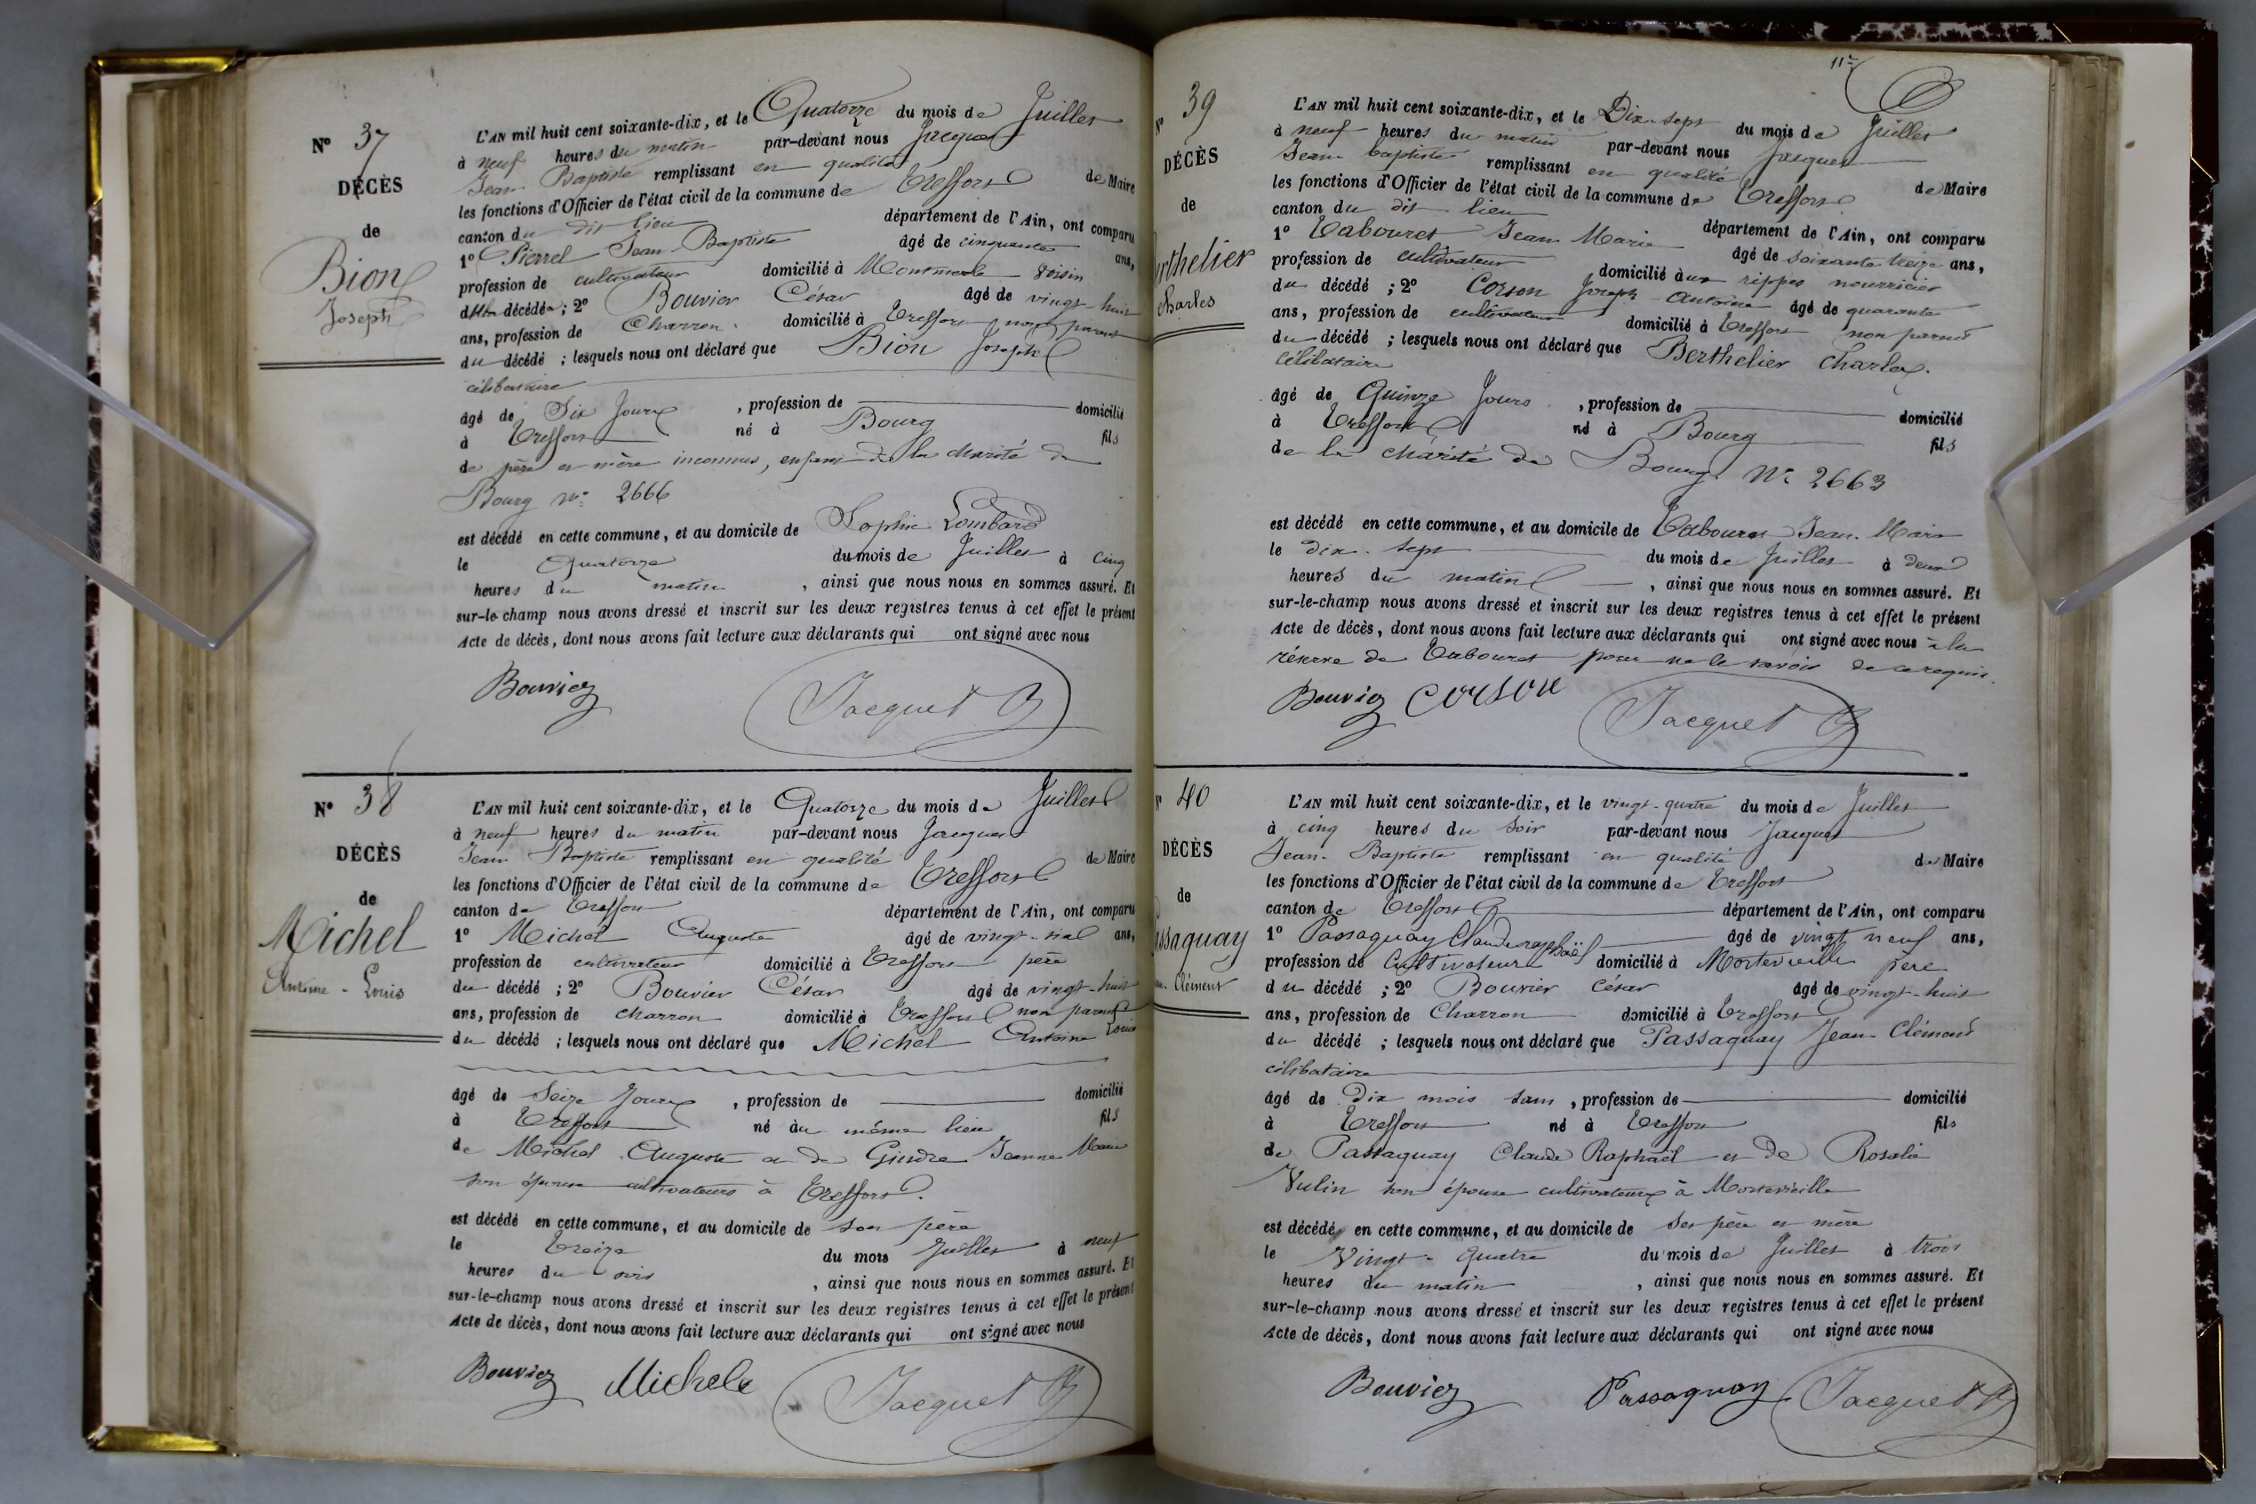 N° 37
DÉCÈS
de
Bion
Joseph
L'AN mil huit cent soixante-dix, et le Quatorze du mois de Juillet
à neuf heures du matin par-devant nous Jacquet
Jean Baptiste remplissant en qualité de Maire
les fonctions d'Officier de l'état civil de la commune de Treffort
canton du dit lieu département de l'Ain, ont comparu
1° Pierrel Jean Baptiste âgé de cinquante ans,
profession de cultivateur domicilié à voisin
du décédé ; 2° Bouvier César âgé de vingt-huit
ans, profession de Charron domicilié à Treffort non parent
du décédé ; lesquels nous ont déclaré que Bion Joseph
célibataire
âgé de Six Jours , profession de domicilié
à Treffort né à Bourg fils
de père et mère inconnus, enfant de la charité de
Bourg N° 2666
est décédé en cette commune, et au domicile de Sophie Lombard
le Quatorze du mois de Juillet à cinq
heures du matin , ainsi que nous nous en sommes assuré. Et
sur-le-champ nous avons dressé et inscrit sur les deux registres tenus à cet effet le présent
Acte de décès, dont nous avons fait lecture aux déclarants qui ont signé avec nous
Bouvier Jacquet
N° 38
DÉCÈS
de
Michel
Antoine-Louis
L'AN mil huit cent soixante-dix, et le Quatorze du mois de Juillet
à neuf heures du matin par-devant nous Jacquet
Jean Baptiste remplissant en qualité de Maire
les fonctions d'Officier de l'état civil de la commune de Treffort
canton de Treffort département de l'Ain, ont comparu
1° Michel Auguste âgé de vingt- ans,
profession de cultivateur domicilié à Treffort père
du décédé ; 2° Bouvier César âgé de vingt-huit
ans, profession de charron domicilié à Treffort non parent
du décédé ; lesquels nous ont déclaré que Michel Antoine Louis
âgé de Seize Jours , profession de domicilié
à Treffort né au même lieu fils
de Michel Auguste et de Jeanne Marie
son épouse cultivateurs à Treffort.
est décédé en cette commune, et au domicile de son père
le Treize du mois Juillet à neuf
heures du soir , ainsi que nous nous en sommes assuré. Et
sur-le-champ nous avons dressé et inscrit sur les deux registres tenus à cet effet le présent
Acte de décès, dont nous avons fait lecture aux déclarants qui ont signé avec nous
Bouvier Michel Jacquet
11e
39
DÉCÈS
de
rthelier
Charles
L'AN mil huit cent soixante-dix, et le Dix-sept du mois de Juillet
à neuf heures du matin par-devant nous Jacquet
Jean baptiste remplissant en qualité de Maire
les fonctions d'Officier de l'état civil de la commune de Treffort
canton du dit lieu département de l'Ain, ont comparu
1° Tabouret Jean Marie âgé de soixante treize ans,
profession de cultivateur domicilié aux rippes nourricier
du décédé ; 2° Corson Joseph Antoine âgé de quarante
ans, profession de cultivateur domicilié à Treffort non parent
du décédé ; lesquels nous ont déclaré que Berthelier Charles.
célibataire
âgé de Quinze Jours , profession de domicilié
à Treffort né à Bourg fils
de la charité de Bourg N° 2663
est décédé en cette commune, et au domicile de Tabouret Jean Marie
le dix-sept du mois de Juillet à deux
heures du matin , ainsi que nous nous en sommes assuré. Et
sur-le-champ nous avons dressé et inscrit sur les deux registres tenus à cet effet le présent
Acte de décès, dont nous avons fait lecture aux déclarants qui ont signé avec nous à la
réserve de Tabouret pour ne le savoir de ce requis.
Bouvier Corson Jacquet
40
DÉCÈS
de
ssaquay
Clément
L'AN mil huit cent soixante-dix, et le vingt-quatre du mois de Juillet
à cinq heures du soir par-devant nous Jacquet
Jean-Baptiste remplissant en qualité de Maire
les fonctions d'Officier de l'état civil de la commune de Treffort
canton de Treffort département de l'Ain, ont comparu
1° Passaquay Claude raphaël âgé de vingt neuf ans,
profession de Cultivateur domicilié à Mortevieille père
du décédé ; 2° Bouvier César âgé de vingt-huit
ans, profession de Charron domicilié à Treffort
du décédé ; lesquels nous ont déclaré que Passaquay Jean Clément
célibataire
âgé de Dix mois sans , profession de domicilié
à Treffort né à Treffort fils
de Passaquay Claude Raphaël et de Rosalie
Vulin son épouse cultivateurs à Mortevieille
est décédé en cette commune, et au domicile de ses père et mère
le Vingt-Quatre du mois de Juillet à trois
heures du matin , ainsi que nous nous en sommes assuré. Et
sur-le-champ nous avons dressé et inscrit sur les deux registres tenus à cet effet le présent
Acte de décès, dont nous avons fait lecture aux déclarants qui ont signé avec nous
Bouvier Passaquay Jacquet